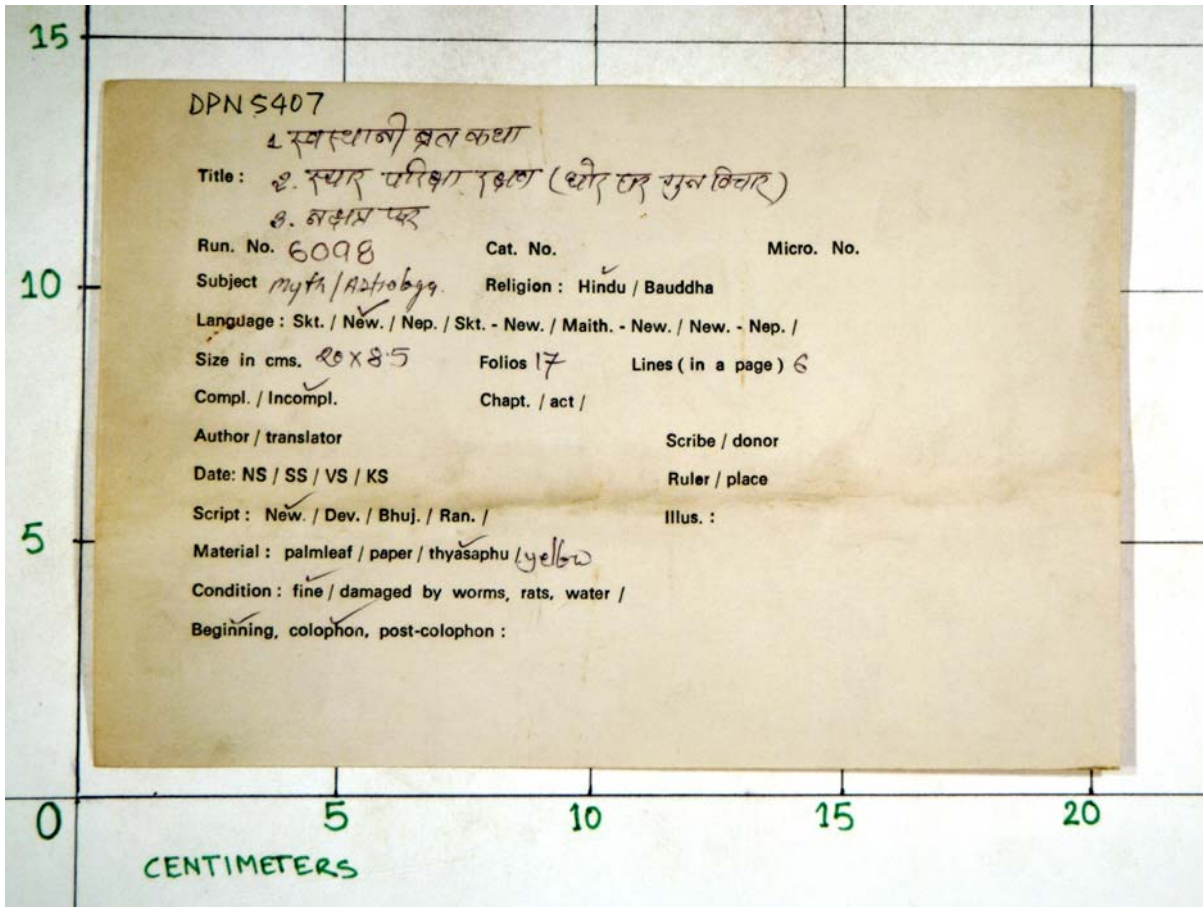 15
DPN 5407
1 स्वस्थानी व्रत कथा
Title : 2. स्यार परिक्षा (घोर विचार)
3. नक्षत्र फर
Run. No. 6098 Cat. No. Micro. No.
10
Subject Myth / Astrology. Religion : Hindu / Bauddha
Language : Skt. / New. / Nep. / Skt. - New. / Maith. - New. / New. - Nep. /
Size in cms. 20 X 8.5 Folios 17 Lines ( in a page ) 6
Compl. / Incompl. Chapt. / act /
Author / translator Scribe / donor
Date: NS / SS / VS / KS Ruler / place
Script : New. / Dev. / Bhuj. / Ran. / Illus. :
5
Material : palmleaf / paper / thyasaphu / yellow
Condition : fine / damaged by worms, rats, water /
Beginning, colophon, post-colophon :
0 5 10 15 20
CENTIMETERS